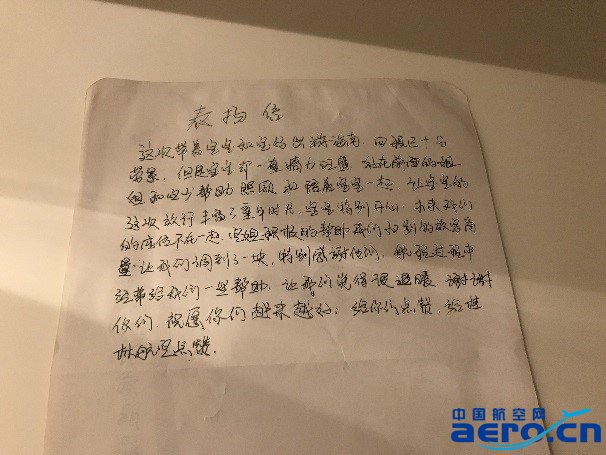 表扬信
这次带着宝宝和宝妈出游海南,回程已十分
劳累,但是宝宝却一直精力旺盛,站在前面的姐
姐和空少帮助照顾和陪着宝宝一起,让宝宝的
这次旅行丰富了童年时光,宝宝特别开心,本来我们
的座位不在一起,空姐积极的帮助我们和别的旅客商
量让我们调到了一块,特别感谢他们,航程过程中
经常给我们一些帮助,让我们觉得很温暖,谢谢
你们,祝愿你们越来越好,给你们点赞,给
航空点赞.
中国航空网
aero.cn